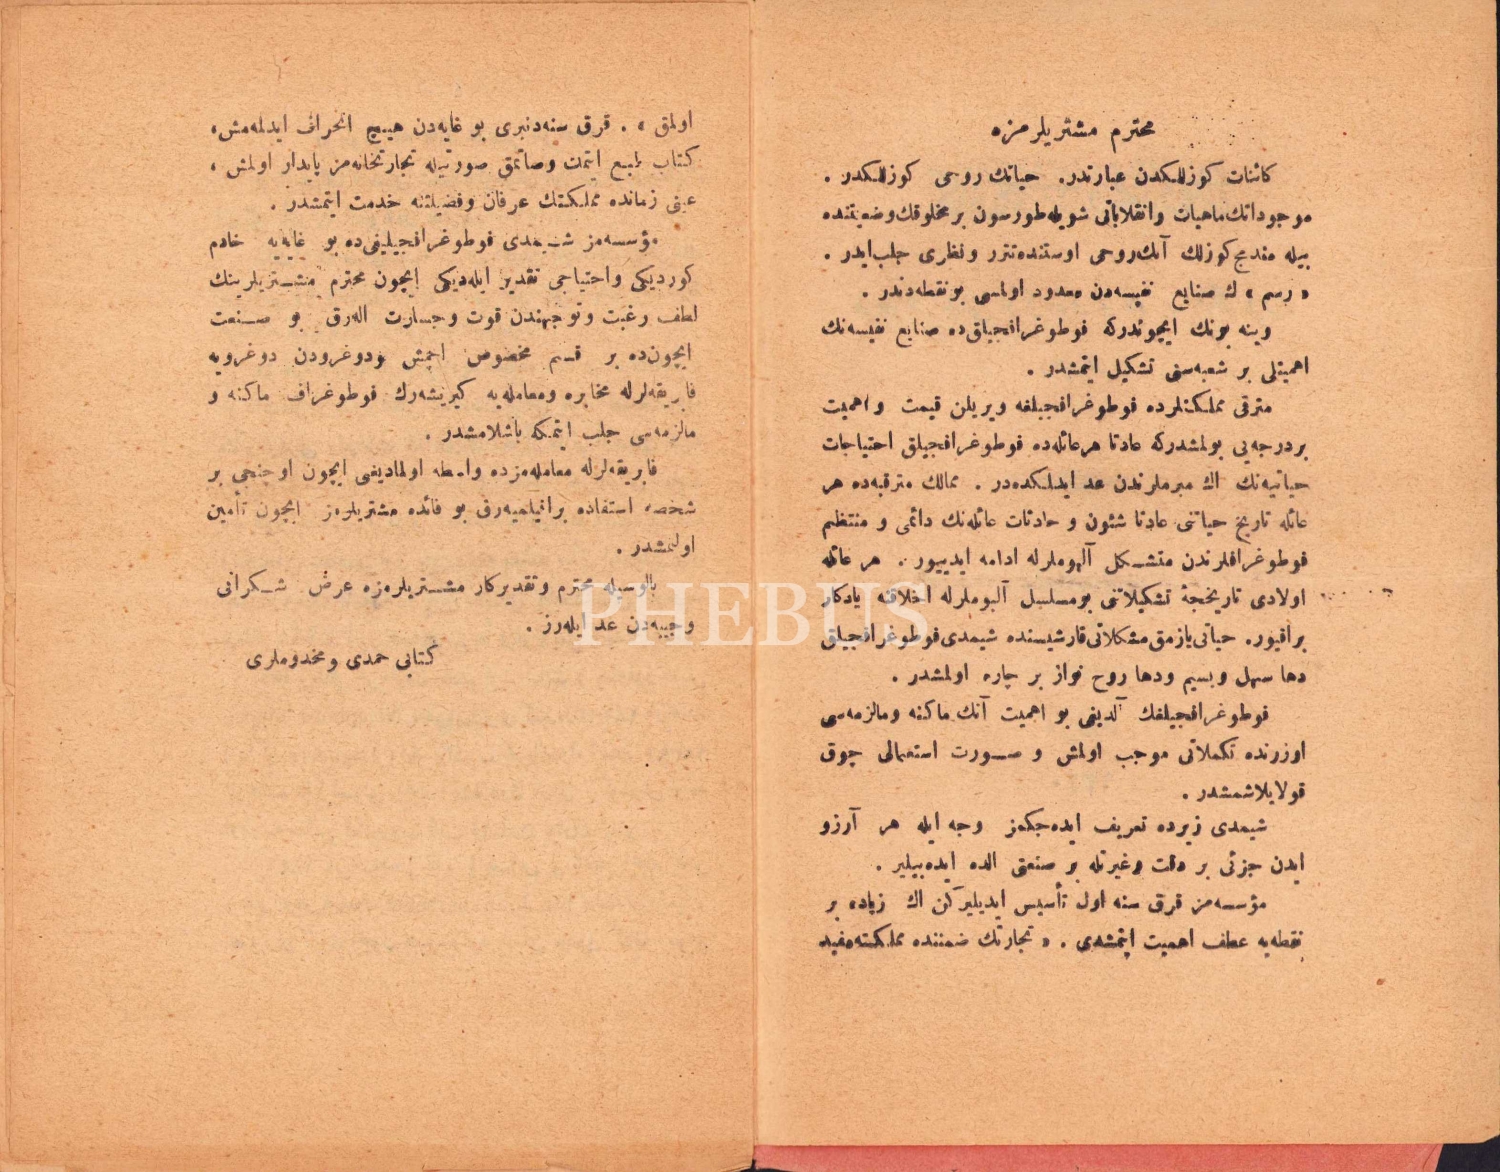 محترم مشتریلرمزه
کائنات کوزللکدن عبارتدر. حیاتك روحی کوزللکدر .
موجوداتك ماهیات وانقلاباتی شویله طورسون بر مخلوقك وضعیتنده
بیله مندمج کوزلك آنك روحی اوستنده تتر ونظری جلب ایدر .
« رسم » ك صنایع نفیسه‌دن معدود اولمسی بو نقطه‌دندر .
وینه بونك ایچوندرکه فوطوغرافجیلق‌ده صنایع نفیسه‌نك
اهمیتلی بر شعبه‌سنی تشکیل ایتمشدر .
مترقی مملکتلرده فوطوغرافجیلغه ویریلن قیمت و اهمیت
بردرجه‌یی بولمشدرکه عادتا هر عائله‌ده فوطوغرافجیلق احتیاجات
حیاتیه‌نك اك مبرملرندن عد ایدلمکده‌در . ممالك مترقیه‌ده هر
عائله تاریخ حیاتنی عادتا شئون و حادثات عائله‌نك دائمی و منتظم
فوطوغرافلرندن متشکل آلبوملرله ادامه ایدییور . هر عائله
اولادی تاریخچهٔ تشکیلاتنی بو مسلسل آلبوملرله اخلاقنه یادکار
براقیور. حیاتی یازمق مشکلاتی قارشیسنده شیمدی فوطوغرافجیلق
دها سهل وبسیم ودها روح نواز بر چاره اولمشدر .
فوطوغرافجیلغك آلدیغی بو اهمیت آنك ماکنه ومالزمه‌سی
اوزرنده تکملاتی موجب اولمش و صورت استعمالی چوق
قولایلاشمشدر .
شیمدی زیرده تعریف ایده‌جکمز وجه ایله هر آرزو
ایدن جزئی بر دقت وغیرتله بر صنعتی الده ایده‌بیلیر .
مؤسسه‌مز قرق سنه اول تأسیس ایدیلیرکن اك زیاده بر
نقطه‌یه عطف اهمیت ایتمشدی . « تجارتك ضمننده مملکته مفید
اولمق » . قرق سنه‌دنبری بو غایه‌دن هیچ انحراف ایدلمه‌مش،
کتاب طبع ایتمك وصاتمق صورتیله تجارتخانه‌مز پایدار اولمش ،
عینی زمانده مملکتك عرفان وفضیلتنه خدمت ایتمشدر .
مؤسسه‌مز شیمدی فوطوغرافجیلیغی‌ده بو غایه‌یه خادم
کوردیکی واحتیاجی تقدیر ایله‌دیکی ایچون محترم مشتریلرینك
لطف رغبت وتوجهندن قوت وجسارت اله‌رق بو صنعت
ایچون‌ده بر قسم مخصوص اچمش ودوغرودن دوغرویه
فابریقه‌لرله مخابره ومعامله‌یه کیریشه‌رك فوطوغراف ماکنه و
مالزمه‌سی جلب ایتمکه باشلامشدر .
فابریقه‌لرله معامله‌مزده واسطه اولمادیغی ایچون اوچنجی بر
شخصه استفاده براقیلمیه‌رق بو فائده مشتریلرمز ایچون تأمین
اولنمشدر .
بالوسیله محترم وتقدیرکار مشتریلرمزه عرض شکرانی
وجیبه‌دن عد ایله‌رز .
کتابی حمدی و مخدوملری
PHEBUS